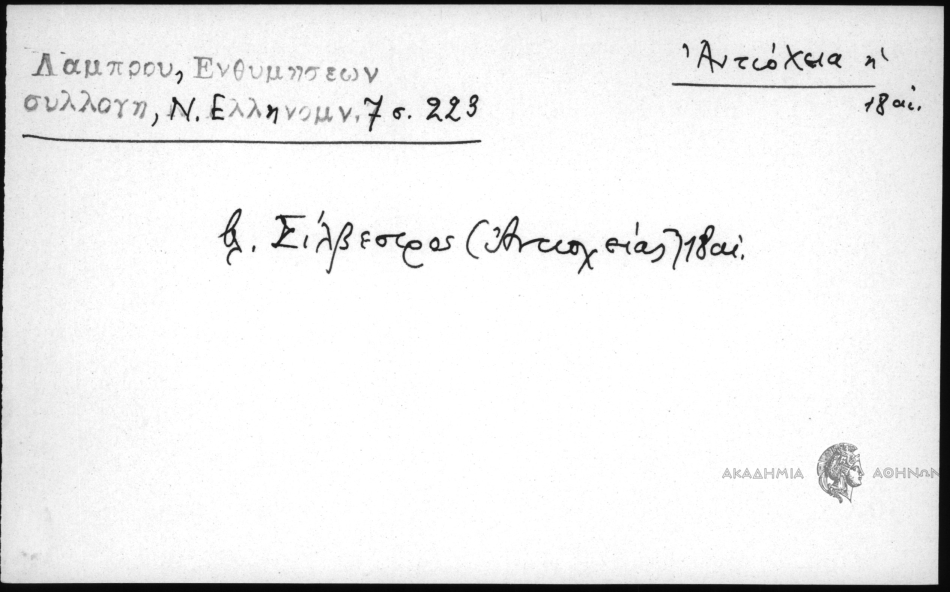 Λαμπρου, Ενθυμησεων
συλλογη, Ν. Ελληνομν. 7 σ. 223
Ἀντιόχεια ἡ
18 αἰ.
βλ. Σίλβεστρος (Ἀντιοχείας) 18 αἰ.
ΑΚΑΔΗΜΙΑ ΑΘΗΝΩΝ